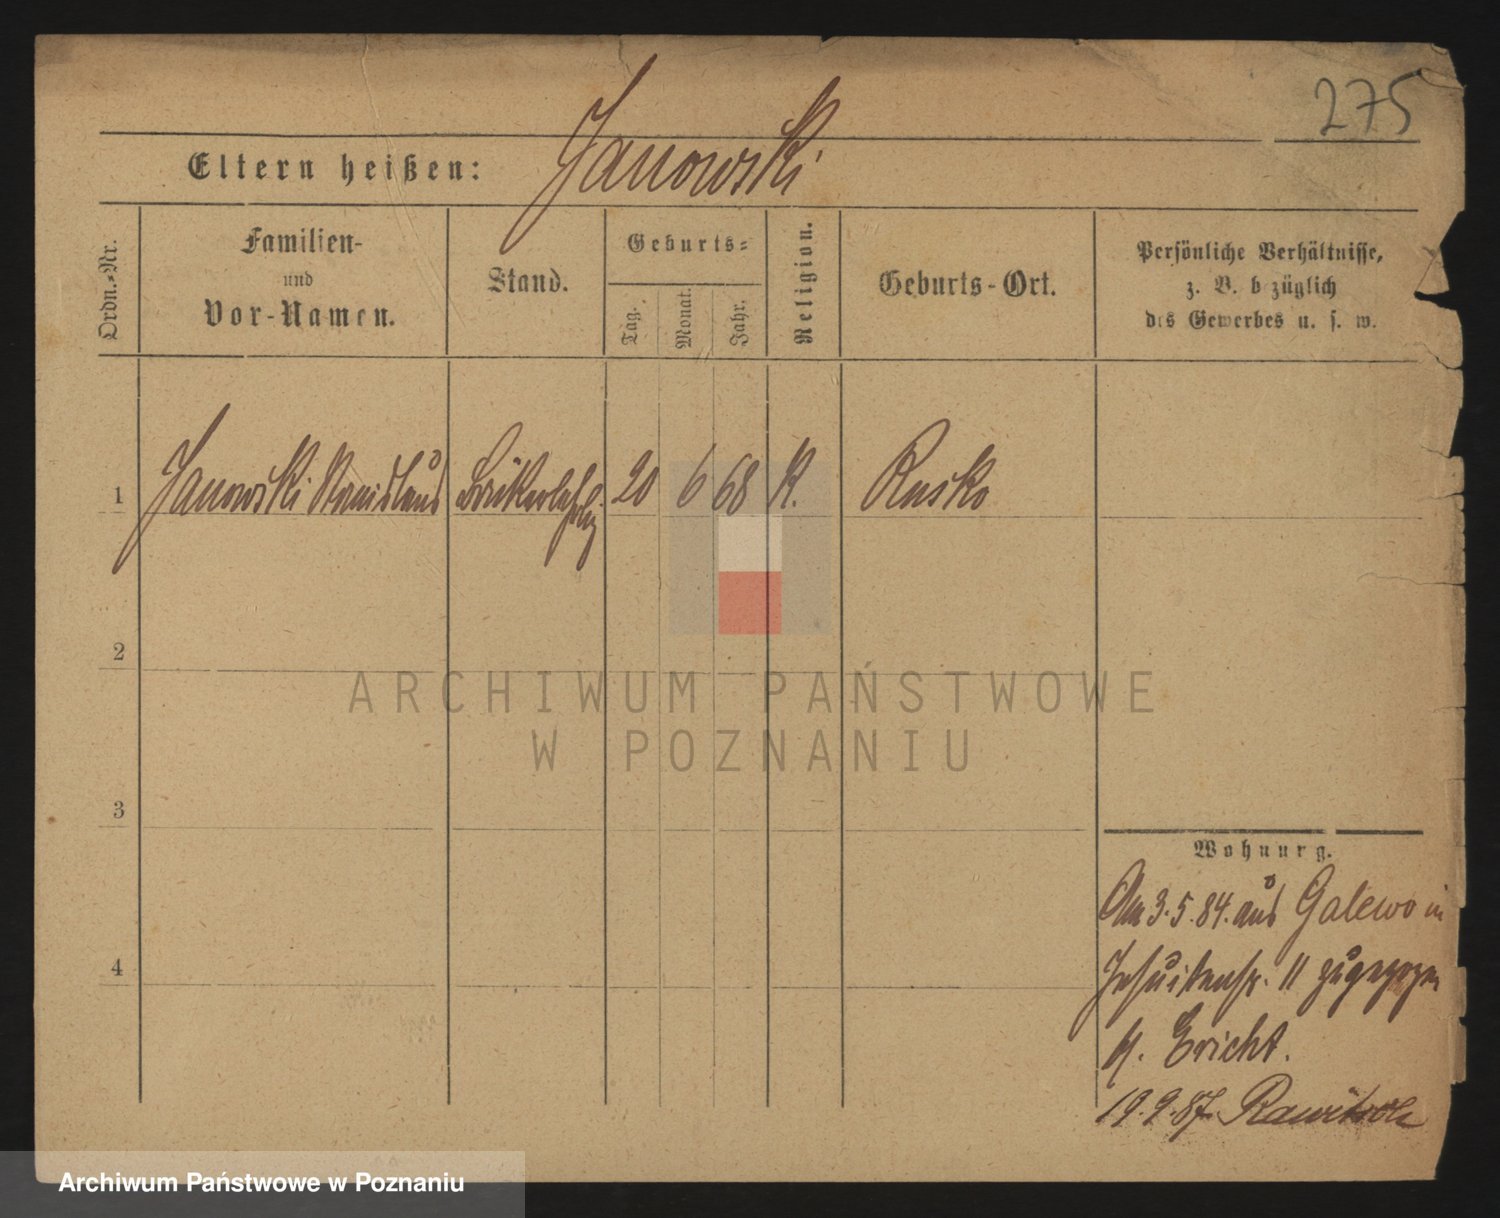 275
Eltern heißen: Janowski
Ordn.-Nr.
Familien-
und
Vor-Namen.
Stand.
Geburts-
Tag.
Monat.
Jahr.
Religion.
Geburts-Ort.
Persönliche Verhältnisse,
z. B. bezüglich
des Gewerbes u. s. w.
1 Janowski Stanislaus Bäckerlehrlg 20 6 68 K. Rusko
2
3
4
ARCHIWUM PAŃSTWOWE
W POZNANIU
Wohnung.
Am 3.5.84. aus Galewo in
Jesuitenstr. 11 zugezogen
19.9.87. Rawitsch
Archiwum Państwowe w Poznaniu